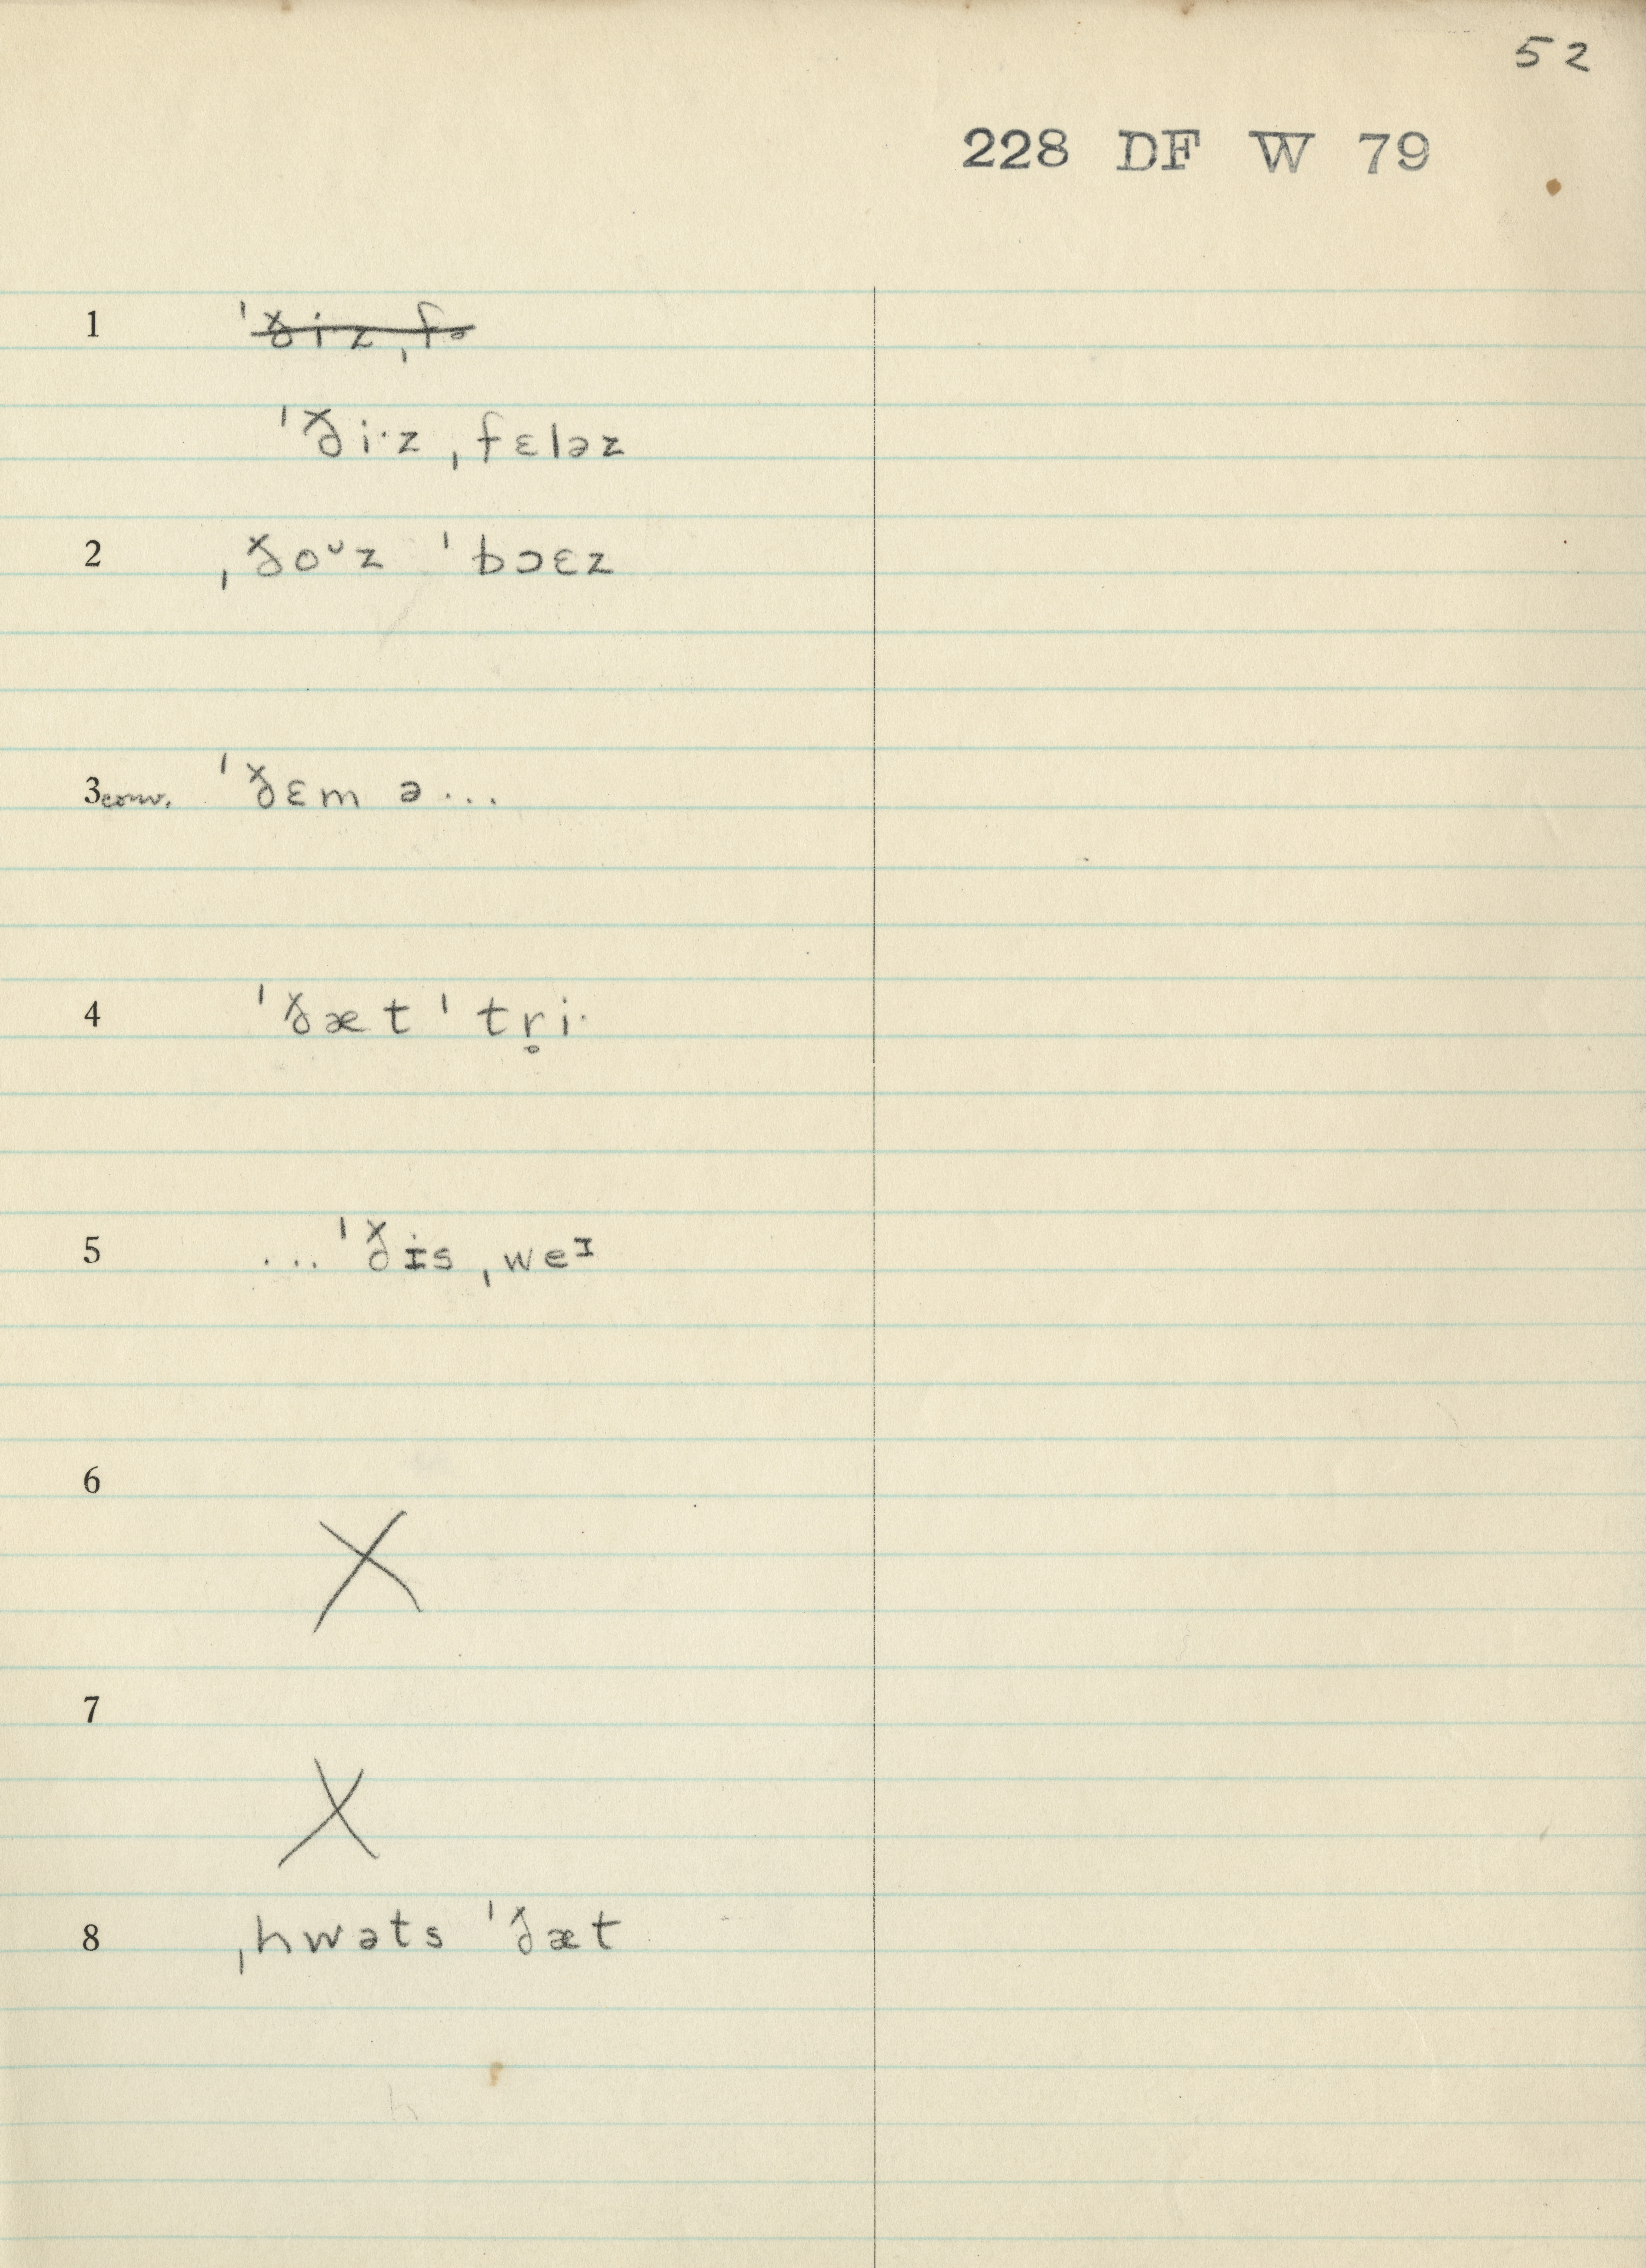 52
228 DF W 79
1 ˈði·z ˌfə
ˈði·z ˌfɛləz
2 ˌðoᴗz ˈbɔɛz
3 conv. ˈðɛm ə...
4 ˈðæt ˈtr̥i·
5 ...ˈðɪs ˌweᶦ
6 X
7 X
8 ˌhwəts ˈðæt